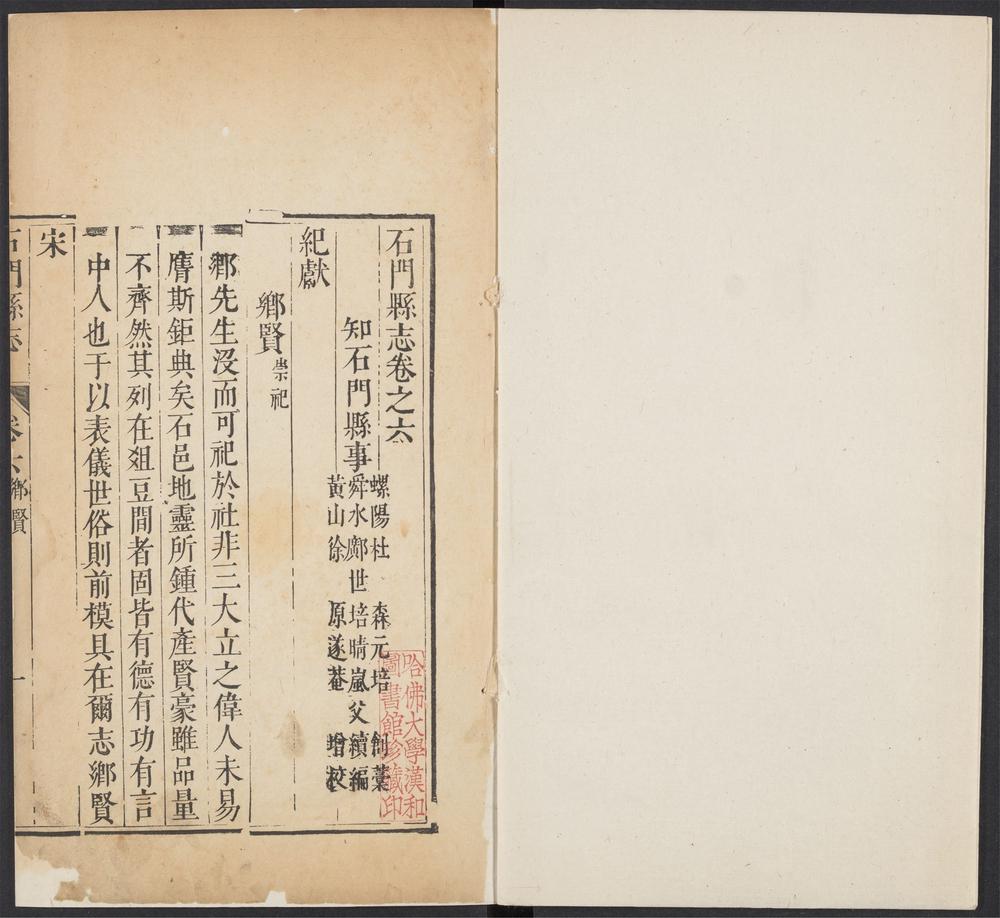 石門縣志卷之六
知石門縣事
螺陽杜　森元培　創藁
舜水鄺世培晴嵐父續編
黃山徐　原遂菴　增校
紀獻
鄉賢 崇祀
鄉先生沒而可祀於社非三大立之偉人未易
膺斯鉅典矣石邑地靈所鍾代產賢豪雖品量
不齊然其列在俎豆間者固皆有德有功有言
中人也于以表儀世俗則前模具在爾志鄉賢
宋
石門縣志 卷六 鄉賢 一
哈佛大學漢和
圖書館珍藏印